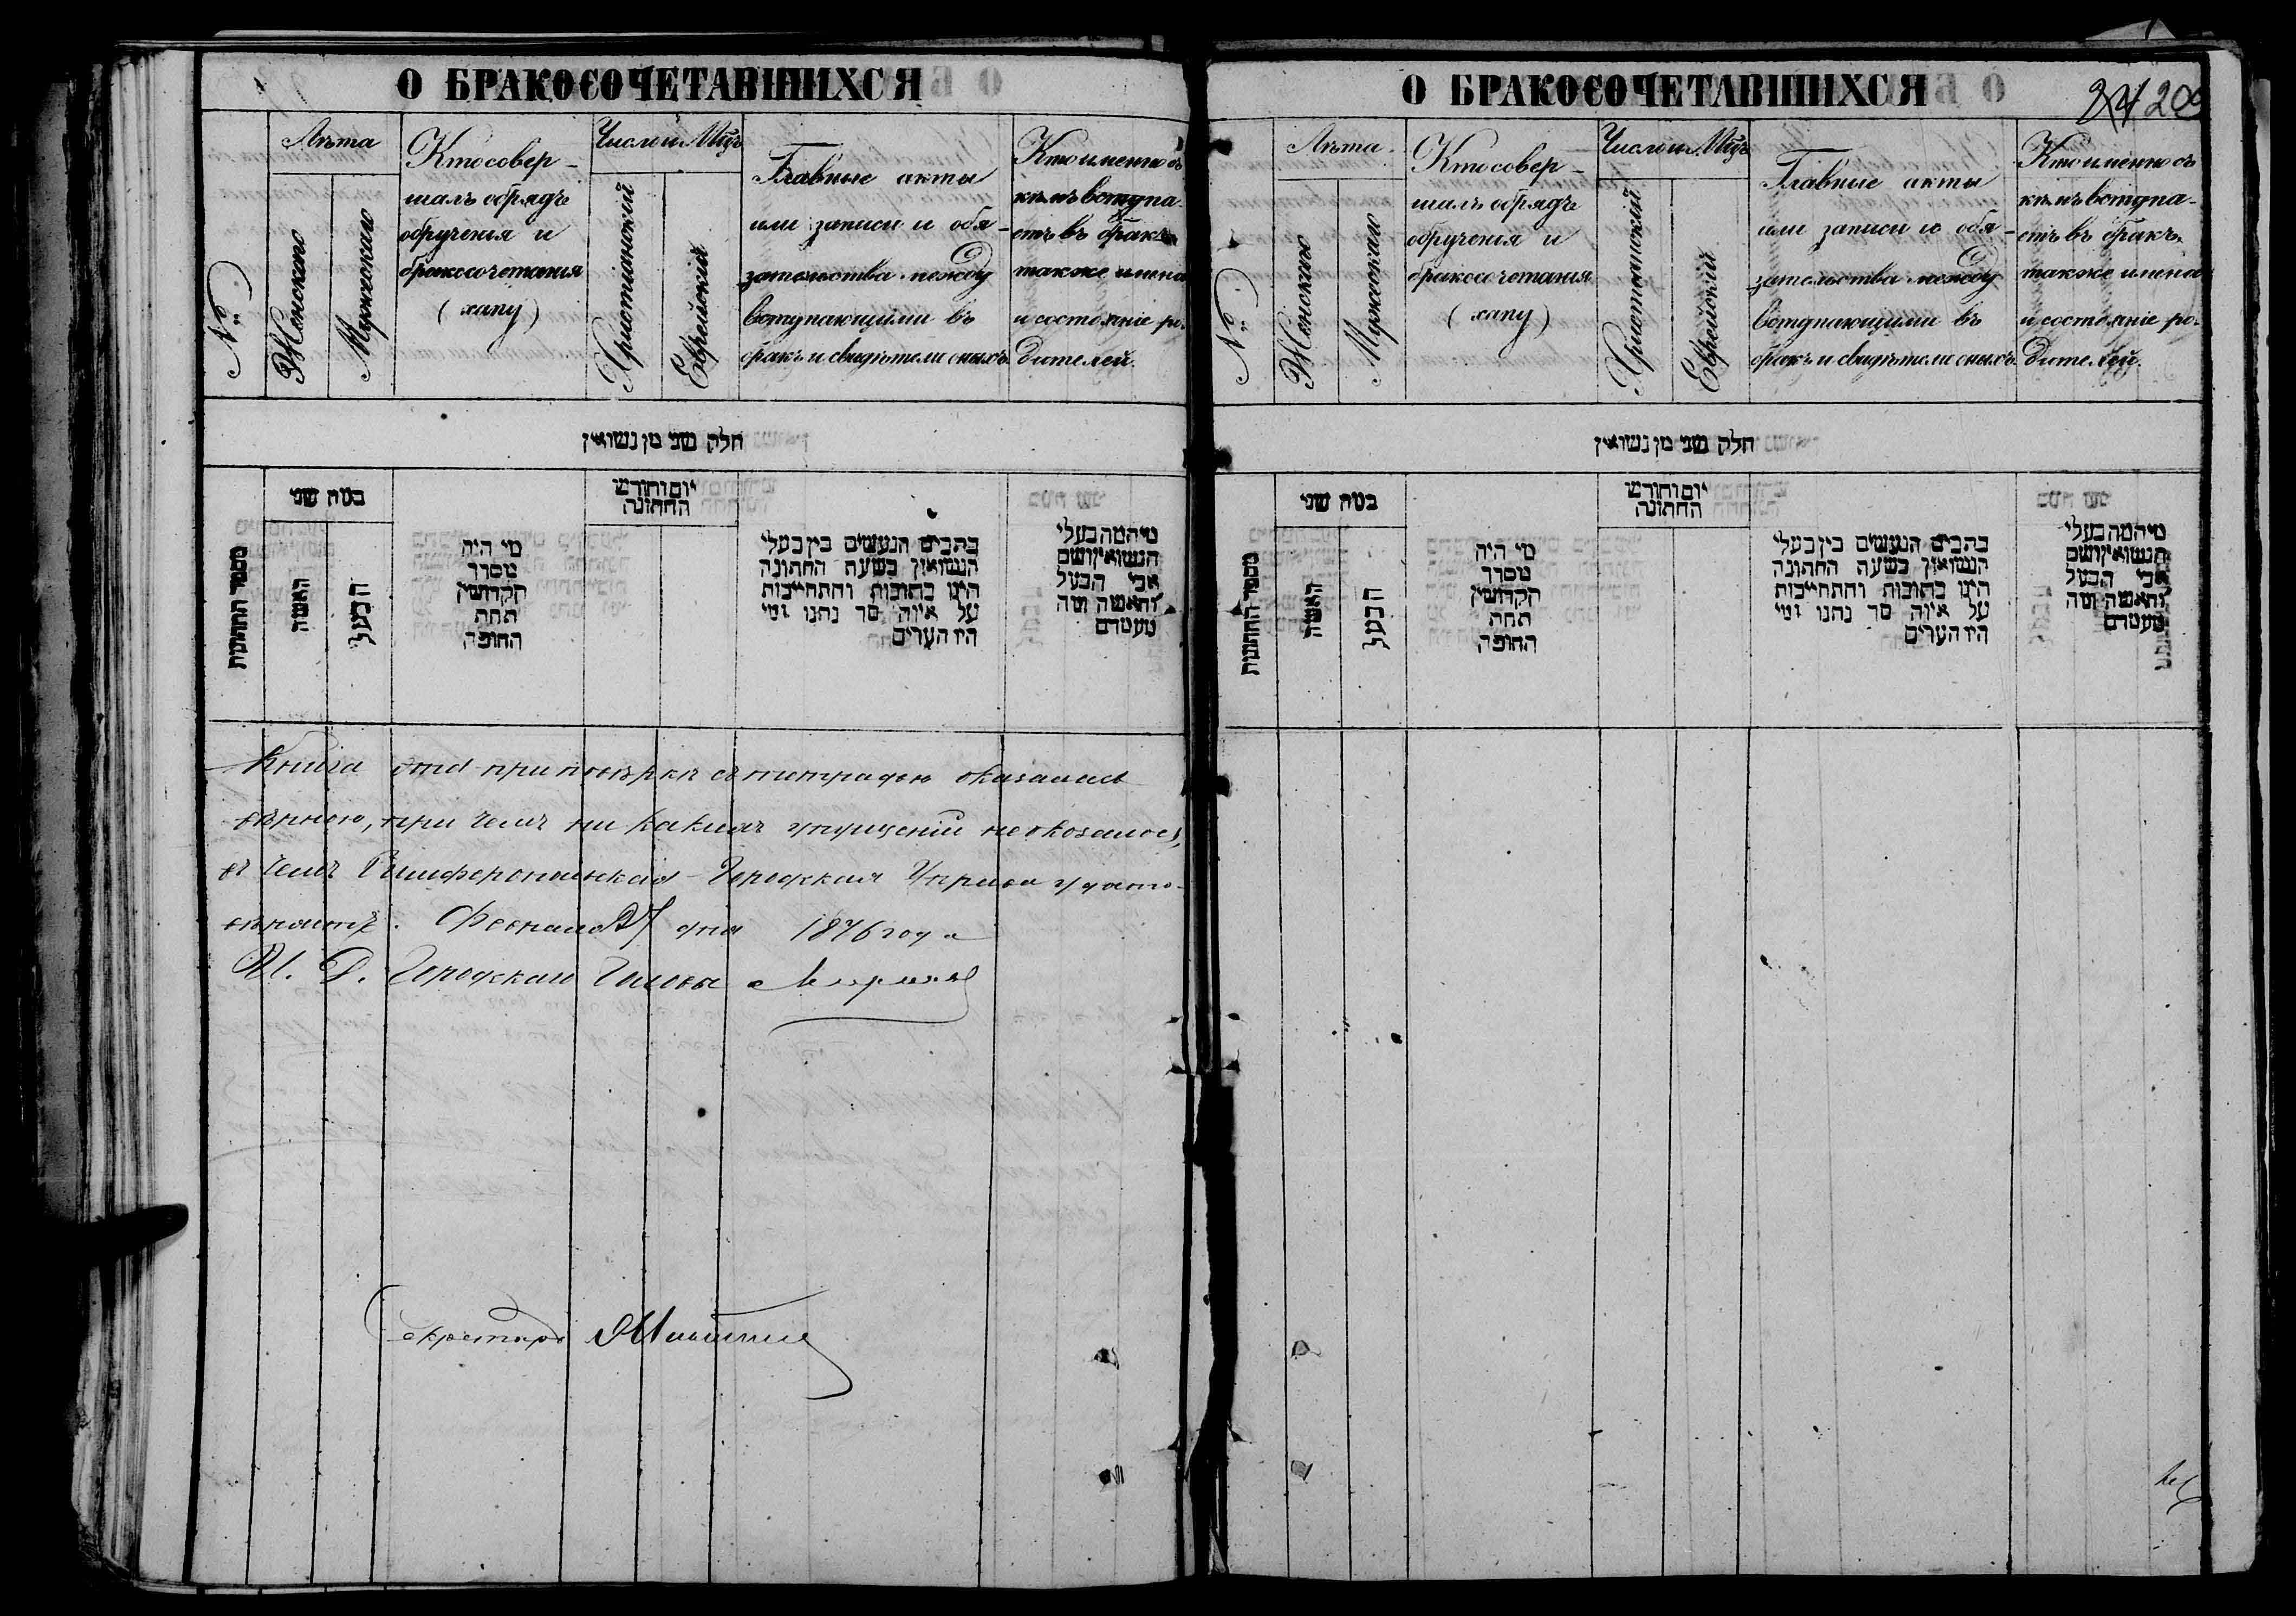 О БРАКОСОЧЕТАВШИХСЯ
№
Лѣта
Женского
Мужскаго
Кто совер-
шалъ обрядъ
обрученія и
бракосочетанія
(хупу)
Число и Мцъ
Христіанскій
Еврейскій
Главные акты
или записи и обя-
зательства между
вступающими въ
бракъ и свидѣтели оныхъ.
Кто именно съ
кѣмъ вступа-
етъ въ бракъ
также имена
и состояніе ро-
дителей.
חלק שני מן נשואין
מספר החתונות
כמה שני
האשה
הבעל
מי היה
מסדר
הקדושין
תחת
החופה
יום וחודש
החתונה
כתבים הנעשים בין בעלי
הנשואין בשעת החתונה
היינו כתובות והתחייבות
על איזה סך נתנו ומי
היו הערים
מי המה בעלי
הנשואין ושם
אבי הבעל
והאשה ומה
מעמדם
Книга эта при повѣркѣ съ тетрадью оказалась
вѣрною, при чемъ ни какихъ упущеній не оказалось,
въ чемъ Симферопольская Городская Управа удосто-
вѣряетъ. Февраля 27 дня 1876 года
И. Д. Городскаго Головы
Секретарь
О БРАКОСОЧЕТАВШИХСЯ
24 209
№
Лѣта
Женского
Мужскаго
Кто совер-
шалъ обрядъ
обрученія и
бракосочетанія
(хупу)
Число и Мцъ
Христіанскій
Еврейскій
Главные акты
или записи и обя-
зательства между
вступающими въ
бракъ и свидѣтели оныхъ.
Кто именно съ
кѣмъ вступа-
етъ въ бракъ
также имена
и состояніе ро-
дителей.
חלק שני מן נשואין
מספר החתונות
כמה שני
האשה
הבעל
מי היה
מסדר
הקדושין
תחת
החופה
יום וחודש
החתונה
כתבים הנעשים בין בעלי
הנשואין בשעת החתונה
היינו כתובות והתחייבות
על איזה סך נתנו ומי
היו הערים
מי המה בעלי
הנשואין ושם
אבי הבעל
והאשה ומה
מעמדם